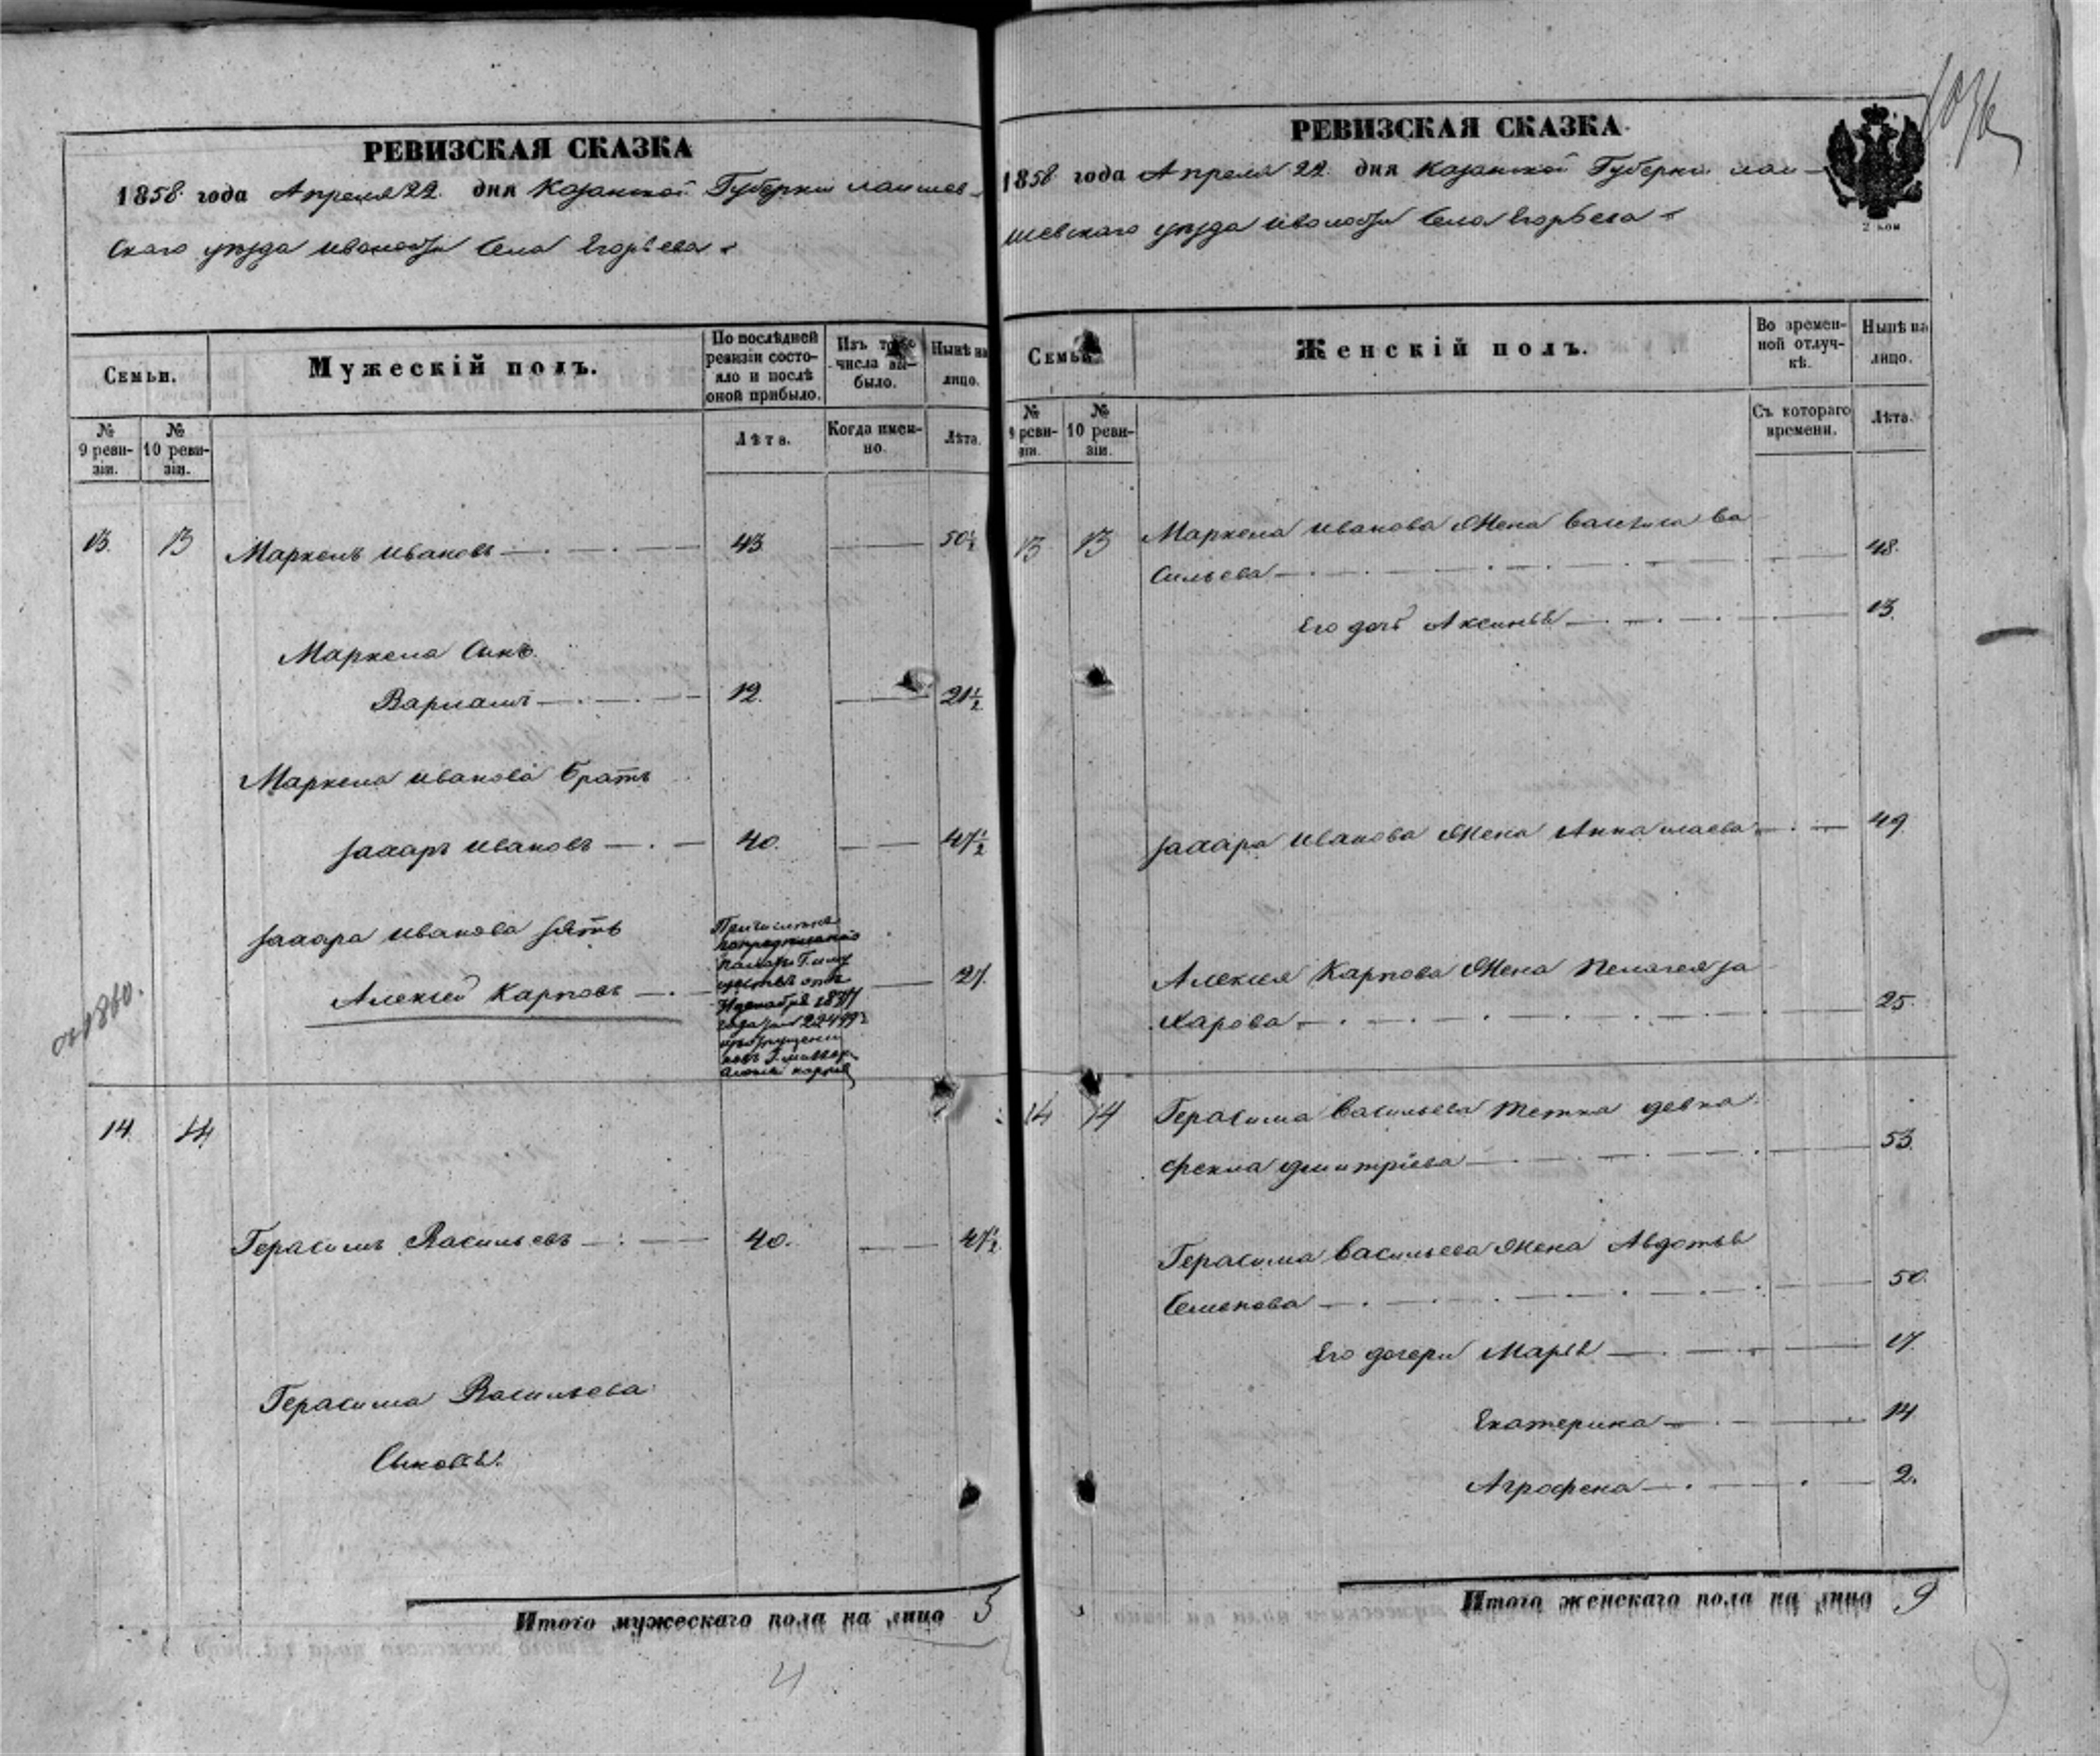 РЕВИЗСКАЯ СКАЗКА
1858 года Апреля 22 дня Казанской Губерніи лаишев-
скаго уѣзда иволости Села Егорьева
Семьи.
Мужескій полъ.
По послѣдней ревизіи состо-
яло и послѣ
оной прибыло.
Изъ того
числа вы-
было.
Нынѣ на
лицо.
№
9 реви-
зіи.
№
10 реви-
зіи.
Лѣта.
Когда имен-
но.
Лѣта.
13. 13 Маркелъ Ивановъ 43 50½
Маркела Сынъ.
Варламъ 12. 21½
Маркела Иванова Братъ
Захаръ Ивановъ 40. 47½
Захара Иванова зять
Алексей Карповъ 27.
14. 14
Герасимъ Васильевъ 40. 47½
Герасима Васильева
Сыновья.
Итого мужескаго пола на лицо 5
4
РЕВИЗСКАЯ СКАЗКА
1858 года Апреля 22 дня Казанской Губерніи лаи-
шевскаго уѣзда иволости Села Егорьева
2 коп
Семьи
Женскій полъ.
Во времен-
ной отлуч-
кѣ.
Нынѣ на
лицо.
№
9 реви-
зіи.
№
10 реви-
зіи.
Съ котораго
времени.
Лѣта.
13 13 Маркела Иванова Жена Ва
сильева 48.
Его дочь Аксинья 13.
Захара Иванова Жена Анна 49
Алексея Карпова Жена Пелагея за
харова 25.
14 14 Герасима Васильева тетка девка
Фекла Дмитріева 53.
Герасима Васильева Жена Авдотья
Семенова 50.
Его дочери Марья 17.
Екатерина 14
Агрофена 2.
Итого женскаго пола на лицо 9